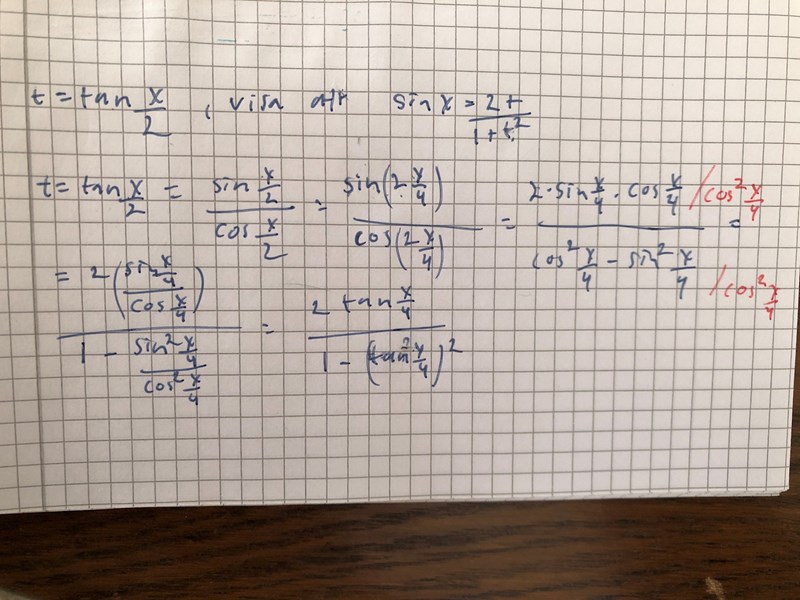 t = tan x/2 , visa att sin x = 2t/(1+t²)
t = tan x/2 = (sin x/2)/(cos x/2) = (sin(2·x/4))/(cos(2 x/4)) = (2·sin x/4 · cos x/4 /cos² x/4)/(cos² x/4 − sin² x/4 /cos² x/4) =
= (2((sin x/4)/(cos x/4)))/(1 − (sin² x/4)/(cos² x/4)) = (2 tan x/4)/(1 − (tan² x/4)²)